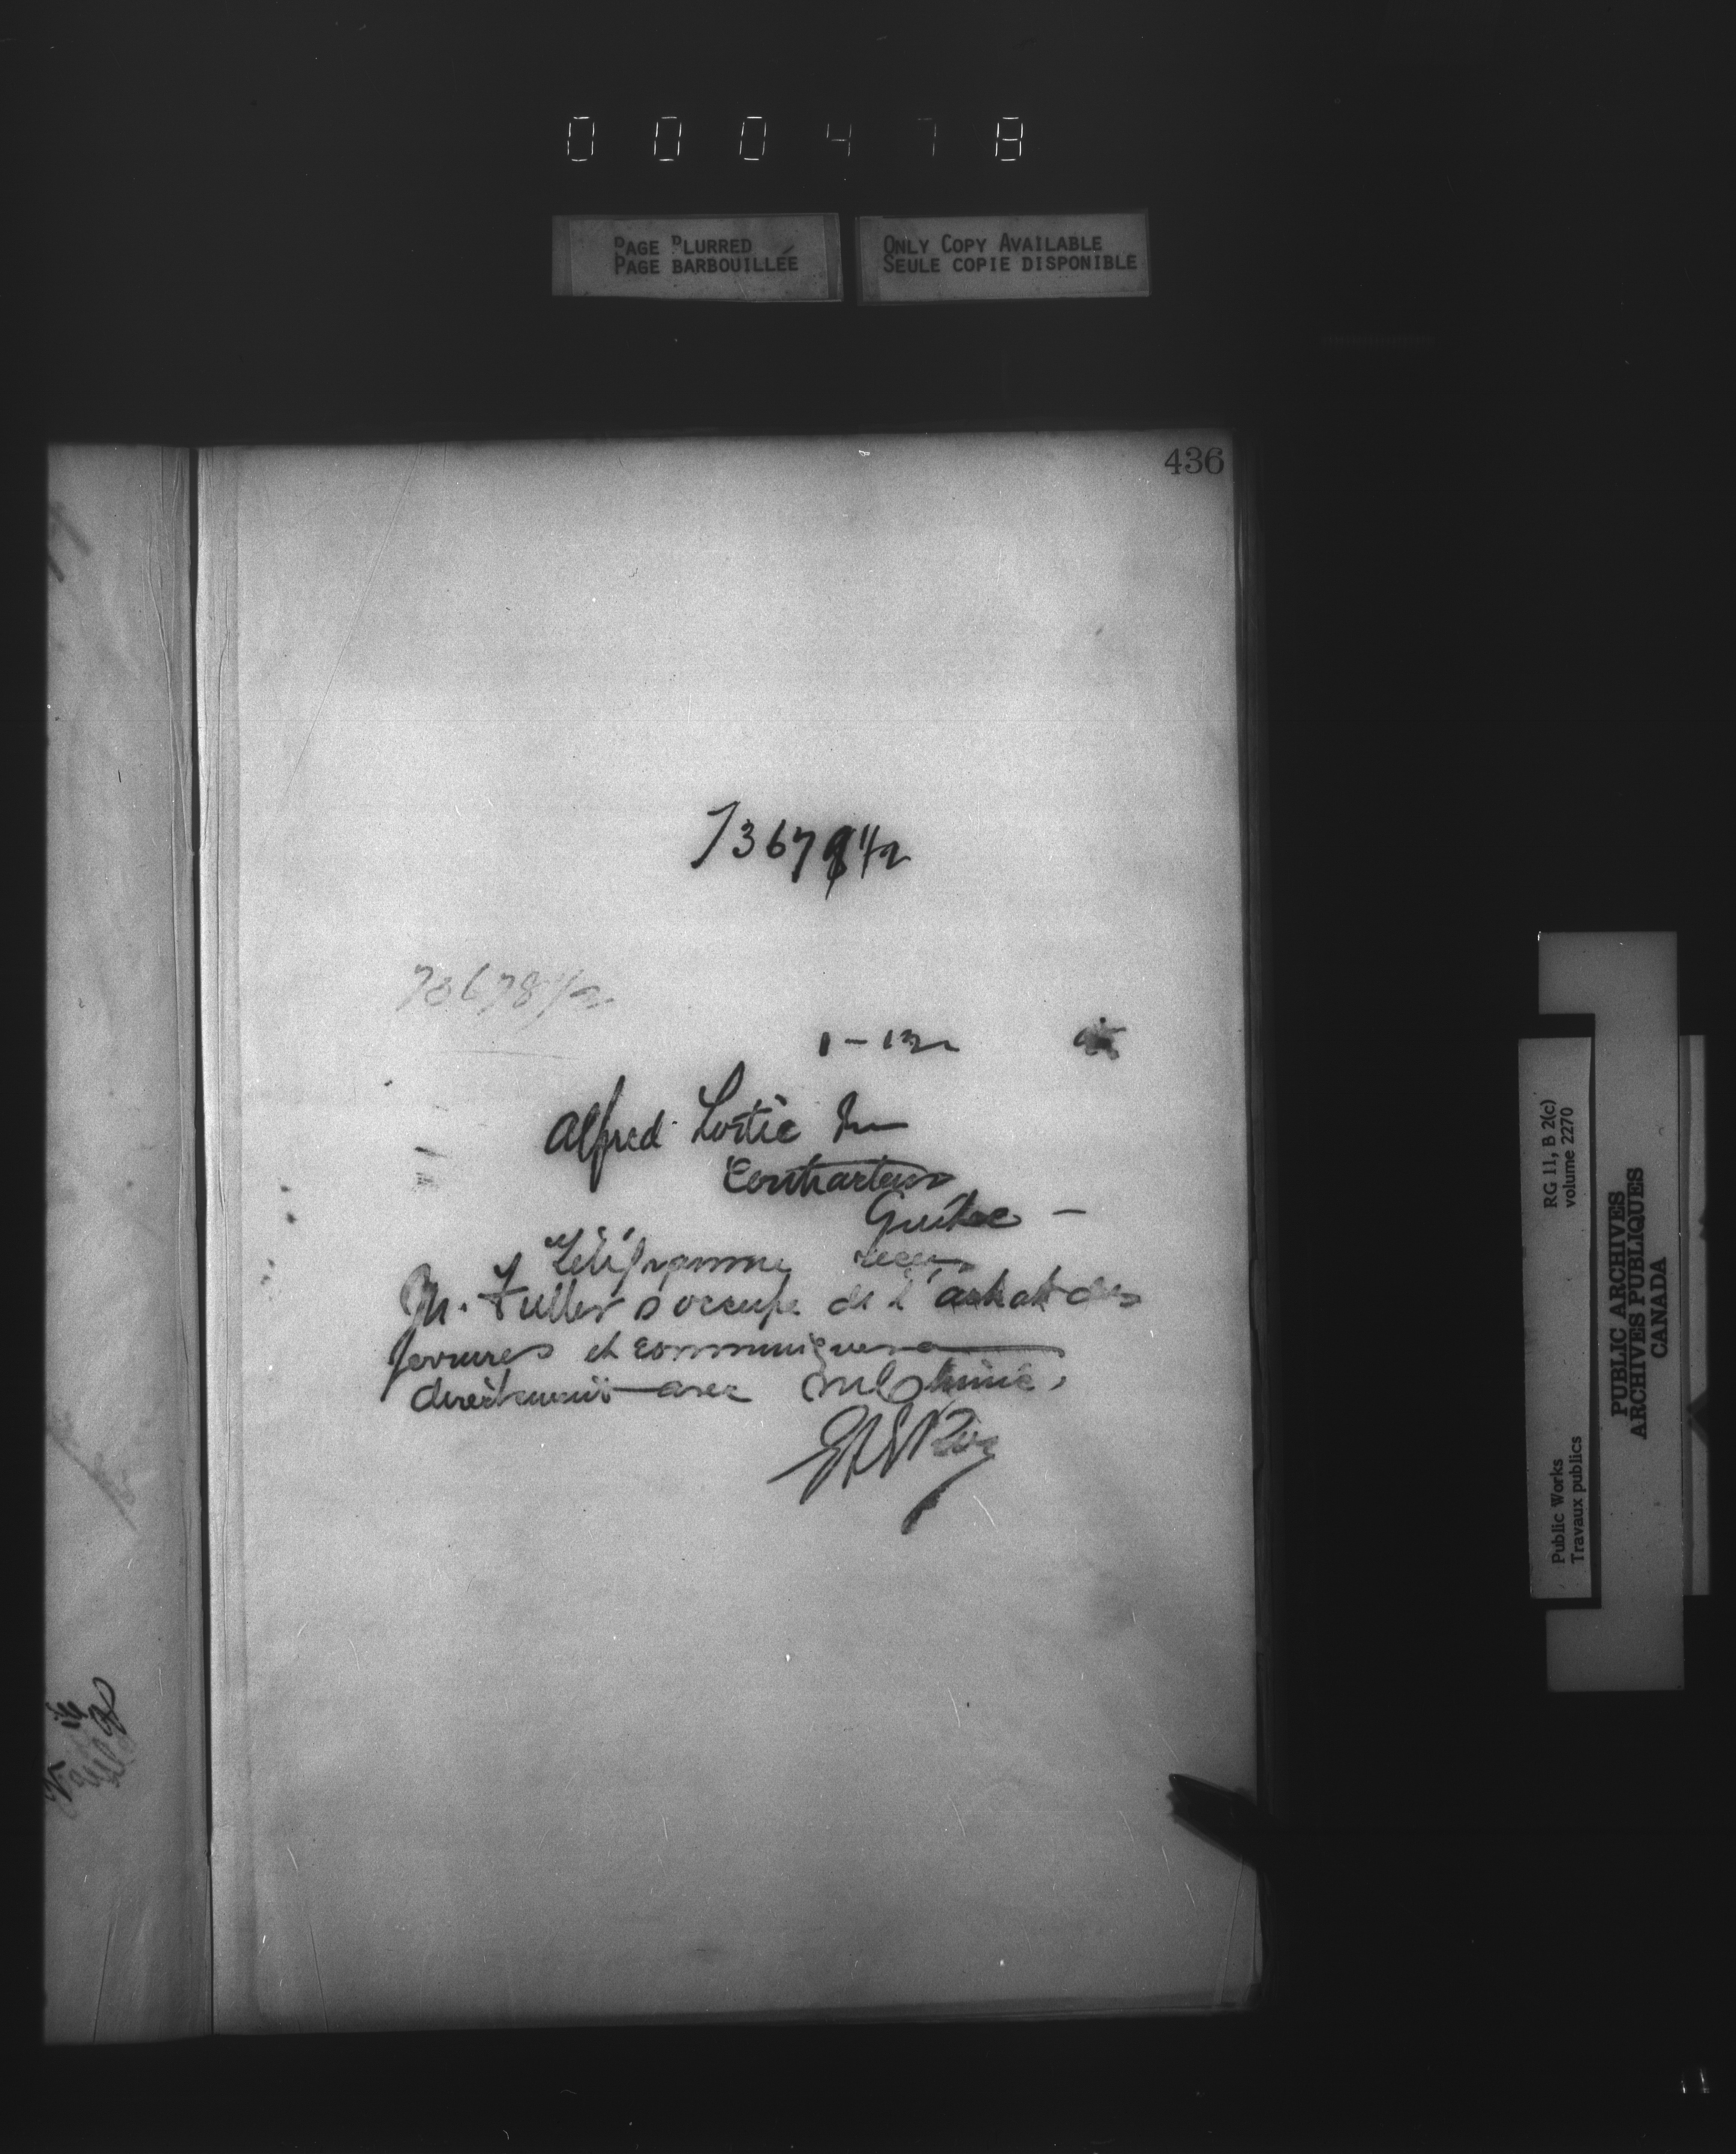 000478
PAGE BLURRED
PAGE BARBOUILLÉE
ONLY COPY AVAILABLE
SEULE COPIE DISPONIBLE
436
73678 1/2
73678 1/2
Alfred Lortie
Contracteur
Québec —
Télégramme recu
M. Fuller s'occupe de l'achat des
ferrures et communiquera
directement avec
RG 11, B 2(c)
volume 2270
Public Works
Travaux publics
PUBLIC ARCHIVES
ARCHIVES PUBLIQUES
CANADA